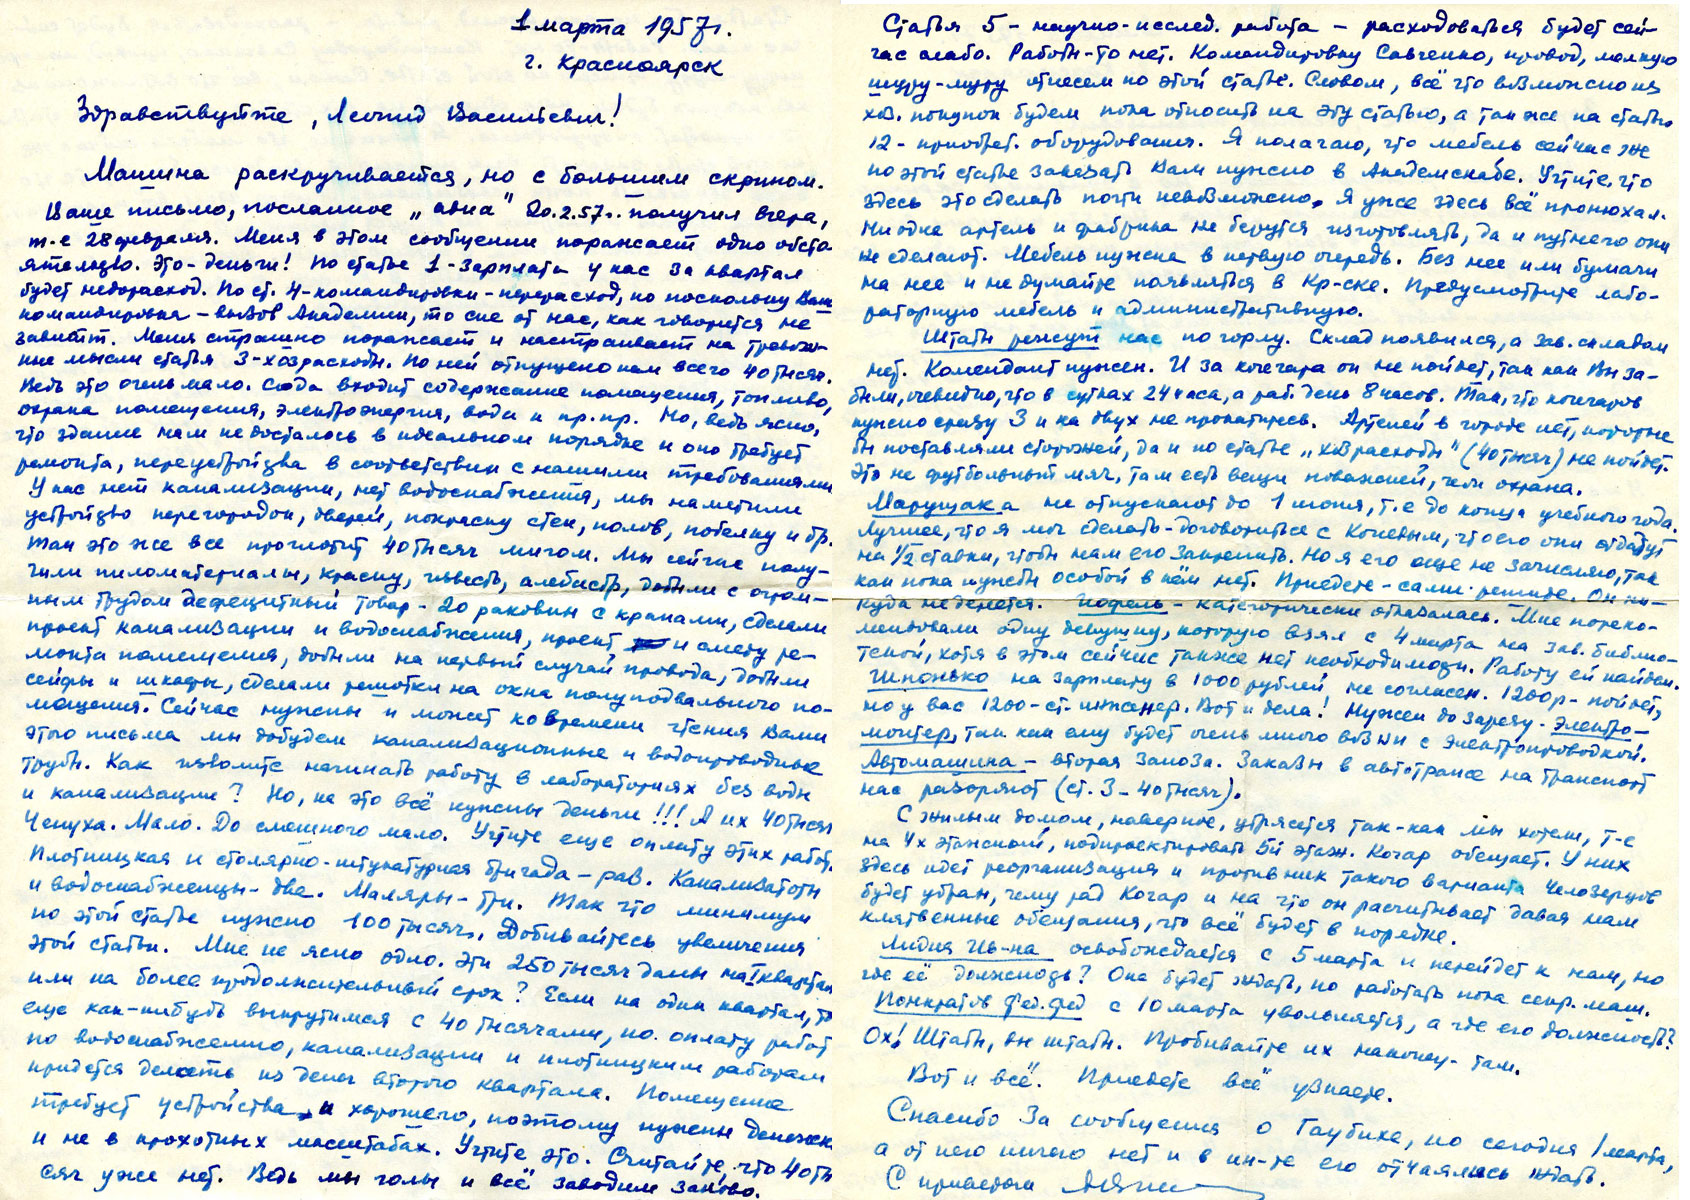 1 марта 1957г.
г. Красноярск
Здравствуйте, Леонид Васильевич!
Машина раскручивается, но с большим скрипом.
Ваше письмо, посланное „авиа" 20.2.57г. получил вчера,
т.е 28 февраля. Меня в этом сообщении поражает одно обсто
ятельство. Это - деньги! По статье 1 - зарплаты у нас за квартал
будет недорасход. По ст. 4 - командировки - перерасход, но поскольку Ваша
командировка - вызов Академии, то сие от нас, как говорится не
зависит. Меня страшно поражает и настраивает на тревож-
ные мысли статья 3 - хозрасходы. По ней отпущено нам всего 40 тысяч.
Ведь это очень мало. Сюда входит содержание помещения, топливо,
охрана помещения, электроэнергия, вода и пр. пр. Но, ведь ясно,
что здание нам не досталось в идеальном порядке и оно требует
ремонта, переустройства в соответствии с нашими требованиями
У нас нет канализации, нет водоснабжения, мы наметили
устройство перегородок, дверей, покраску стен, полов, побелку и др.
Так это же все проглотит 40 тысяч мигом. Мы сейчас полу-
чили пиломатериалы, краску, известь, алебастр, добыли с огром-
ным трудом дефецитный товар - 20 раковин с кранами, сделали
проект канализации и водоснабжения, проект и смету ре-
монта помещения, добыли на первый случай провода, добыли
сейфы и шкафы, сделали решотки на окна полуподвального по-
мещения. Сейчас нужны и может ко времени чтения Вами
этого письма мы добудем канализационные и водопроводные
трубы. Как изволите начинать работу в лабораториях без воды
и канализации? Но, на это всё нужны деньги!!! А их 40 тысяч
Чепуха. Мало. До смешного мало. Учтите еще оплату этих работ.
Плотницкая и столярно-штукатурная бригада - раз. Канализаторы
и водоснабженцы - два. Маляры - три. Так что минимум
по этой статье нужно 100 тысяч. Добивайтесь увеличения
этой статьи. Мне не ясно одно. Эти 250 тысяч даны на I квартал
или на более продолжительный срок? Если на один квартал, то
еще как-нибудь выкрутимся с 40 тысячами, но оплату работ
по водоснабжению, канализации и плотницким работам
придется делать из денег второго квартала. Помещение
требует устройства и хорошего, поэтому нужны денежки
и не в крохотных масштабах. Учтите это. Считайте, что 40 ты
сяч уже нет. Ведь мы голы и всё заводим заново.
Статья 5 - научно-исслед. работа - расходоваться будет сей-
час слабо. Работы-то нет. Командировку Савченко, провод, мелкую
шуру-муру отнесем по этой статье. Словом, всё что возможно из
хоз. покупок будем пока относить на эту статью, а также на статью
12 - приобрет. оборудования. Я полагаю, что мебель сейчас же
по этой статье заказать Вам нужно в Академснабе. Учтите, что
здесь это сделать почти невозможно. Я уже здесь всё пронюхал.
Ни одна артель и фабрика не берутся изготовлять, да и путнего они
не сделают. Мебель нужна в первую очередь. Без нее или бумаги
на нее и не думайте появляться в Кр-ске. Предусмотрите лабо-
раторную мебель и административную.
Штаты режут нас по горлу. Склад появился, а зав. складом
нет. Комендант нужен. И за кочегара он не пойдет, так как Вы за-
были, очевидно, что в сутках 24 часа, а раб. день 8 часов. Так, что кочегаров
нужно сразу 3 и на двух не прокатиться. Артелей в городе нет, которые
бы поставляли сторожей, да и по статье „хозрасходы" (40 тысяч) не пойдет.
Это не футбольный мяч, там есть вещи поважней, чем охрана.
Марущака не отпускают до 1 июня, т.е до конца учебного года.
Лучшее, что я мог сделать - договориться с Коневым, что его они отдадут
на 1/2 ставки, чтобы нам его закрепить. Но я его еще не зачисляю, так
как пока нужды особой в нём нет. Приедете - сами решите. Он ни-
куда не денется. Иофель - категорически отказалась. Мне пореко-
мендовали одну девушку, которую взял с 4 марта на зав. библио-
текой, хотя в этом сейчас также нет необходимости. Работу ей найдем.
Шпонько на зарплату в 1000 рублей не согласен. 1200р - пойдет,
но у вас 1200 - ст. инженер. Вот и дела! Нужен до зарезу - электро-
монтер, так как ему будет очень много возни с электропроводкой.
Автомашина - вторая заноза. Заказы в автотрансе на транспорт
нас разоряют (ст. 3 - 40 тысяч).
С жилым домом, наверное, утрясется так-как мы хотели, т-е
на 4х этажный, подпроектировать 5й этаж. Кочар обещает. У них
здесь идет реорганизация и противник такого варианта Челозерцов
будет убран, чему рад Кочар и на что он расчитывает давая нам
клятвенные обещания, что всё будет в порядке.
Лидия Ив-на освобождается с 5 марта и перейдет к нам, но
где её должность? Она будет ждать, но работать пока секр. маш.
Понкратов Фед. Фед с 10 марта увольняется, а где его должность?
Ох! Штаты, вы штаты. Пробивайте их наконец - там.
Вот и всё. Приедете всё узнаете.
Спасибо за сообщения о Гаубихе, но сегодня 1 марта,
а от него ничего нет и в ин-те его отчаялись ждать.
С приветом